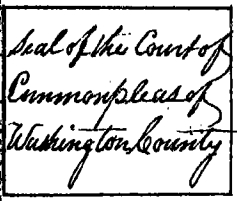 Seal of the Court of
Cummonpleas of
Washington County